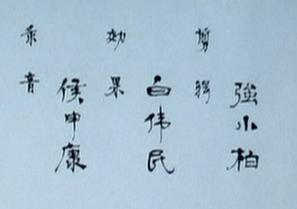 录音
侯申康
効果
白伟民
剪辑
強小柏